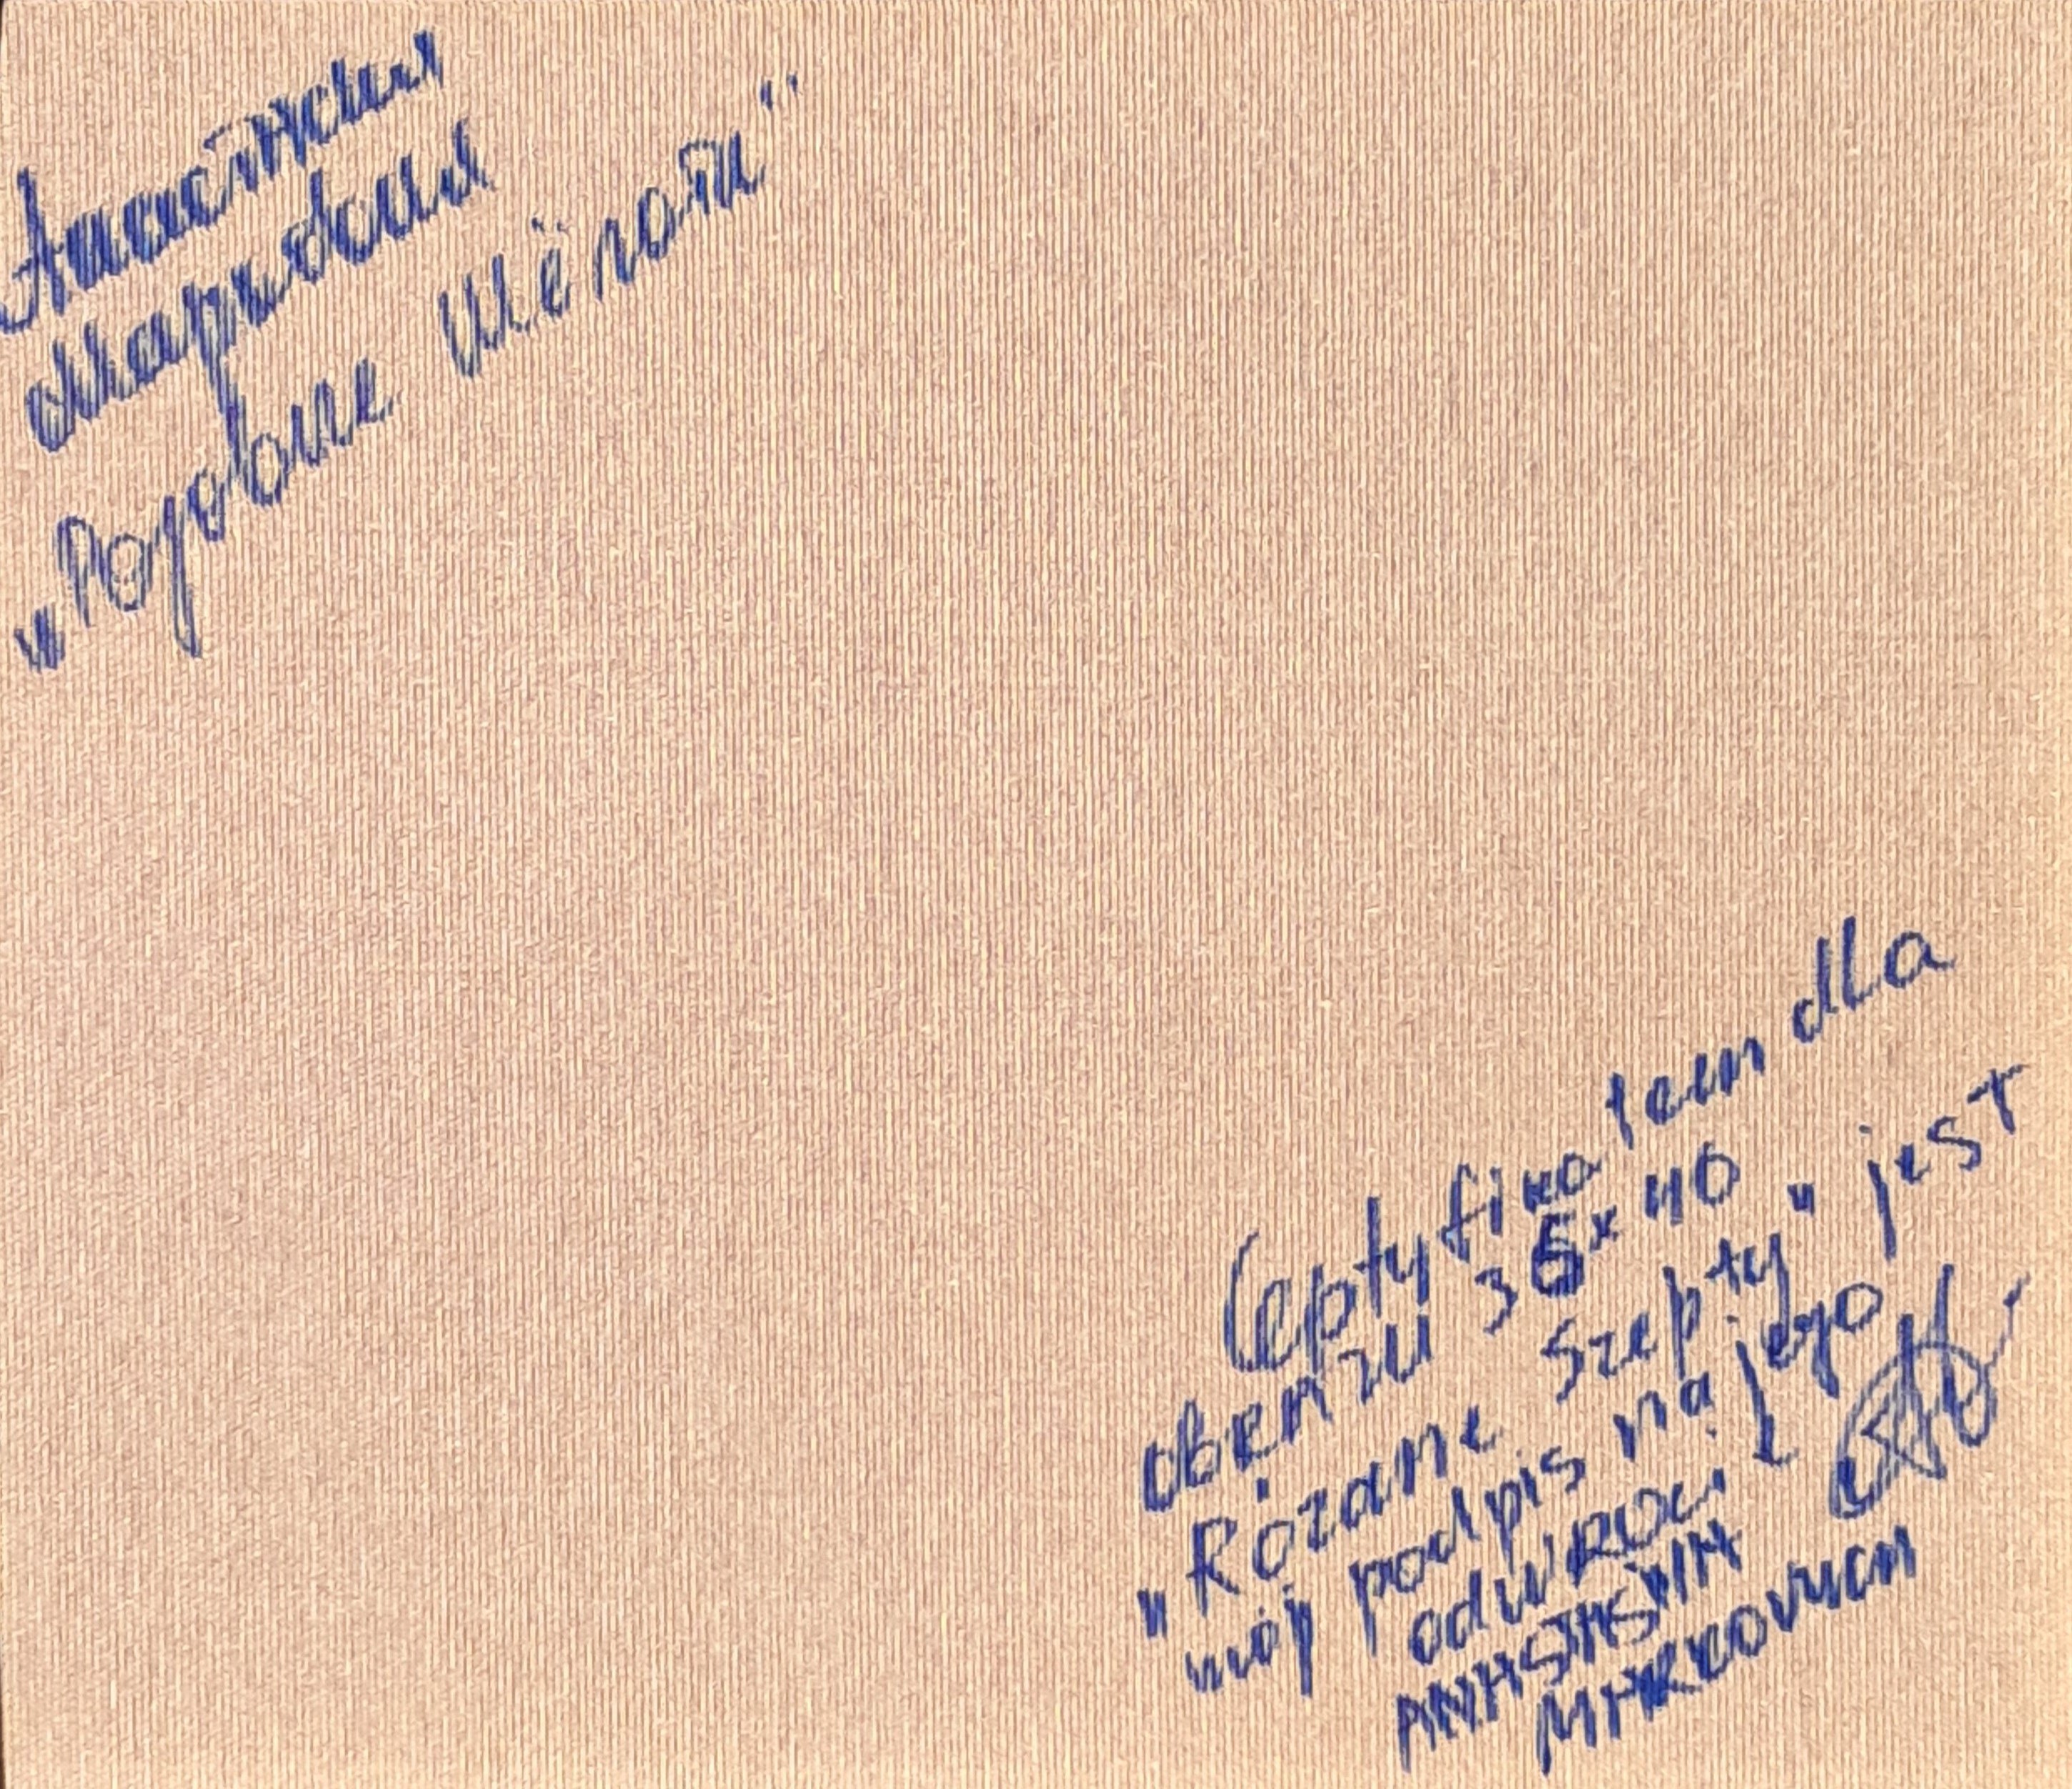 Анастасия
Маркович
"Розовые Шёпоты"
Certyfikatem dla
obrazu 35x40
"Rózane Szepty" jest
mój podpis na jego
odwroci
ANASTASIIA
MARKOVYCH